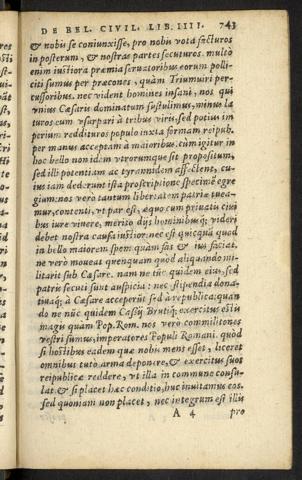 DE BEL. CIVIL. LIB. IIII. 743
& nobis se coniunxisse, pro nobis vota facturos
in posterum, & nostras partes secuturos. multò
enim iustiora præmia seruatoribus eorum polli-
citi sumus per præcones, quàm Triumuiri per-
cussoribus. nec vident homines insani, nos qui
vnius Cæsaris dominatum sustulimus, minus la
turos eum vsurpari à tribus viris, sed potius im
perium reddituros populo iuxta formam reipub.
per manus acceptam à maioribus. cùm igitur in
hoc bello non idem vtrorumque sit propositum,
sed illi potentiam ac tyrannidem affectent, cu-
ius iam dederunt ista proscriptione specimẽ egre
gium: nos verò tantùm libertatem patriæ tuea-
mur, contenti, vt par est, æquo cum priuatis ciui
bus iure viuere, meritò dijs hominibusq; videri
debet nostra causa iustior: nec est quicquã quod
in bello maiorem spem quàm fas & ius faciat.
ne verò moueat quenquam quòd aliquando mi-
litarit sub Cæsare. nam ne tũc quidem eius, sed
patriæ secuti sunt auspicia: nec stipendia dona-
tiuaq; à Cæsare acceperũt sed à republica. quan
do ne nũc quidem Cassij Brutiq; exercitus estis
magis quàm Pop. Rom. nos verò commilitones
vestri sumus, imperatores Populi Romani. quòd
si hostibus eadem quæ nobis mens esset, liceret
omnibus tutò arma deponere, & exercitus suos
reipublicæ reddere, vt illa in commune consu-
lat & si placet hæc conditio, huc inuitamus eos.
sed quoniam non placet, nec integrum est illis
A 4 pro